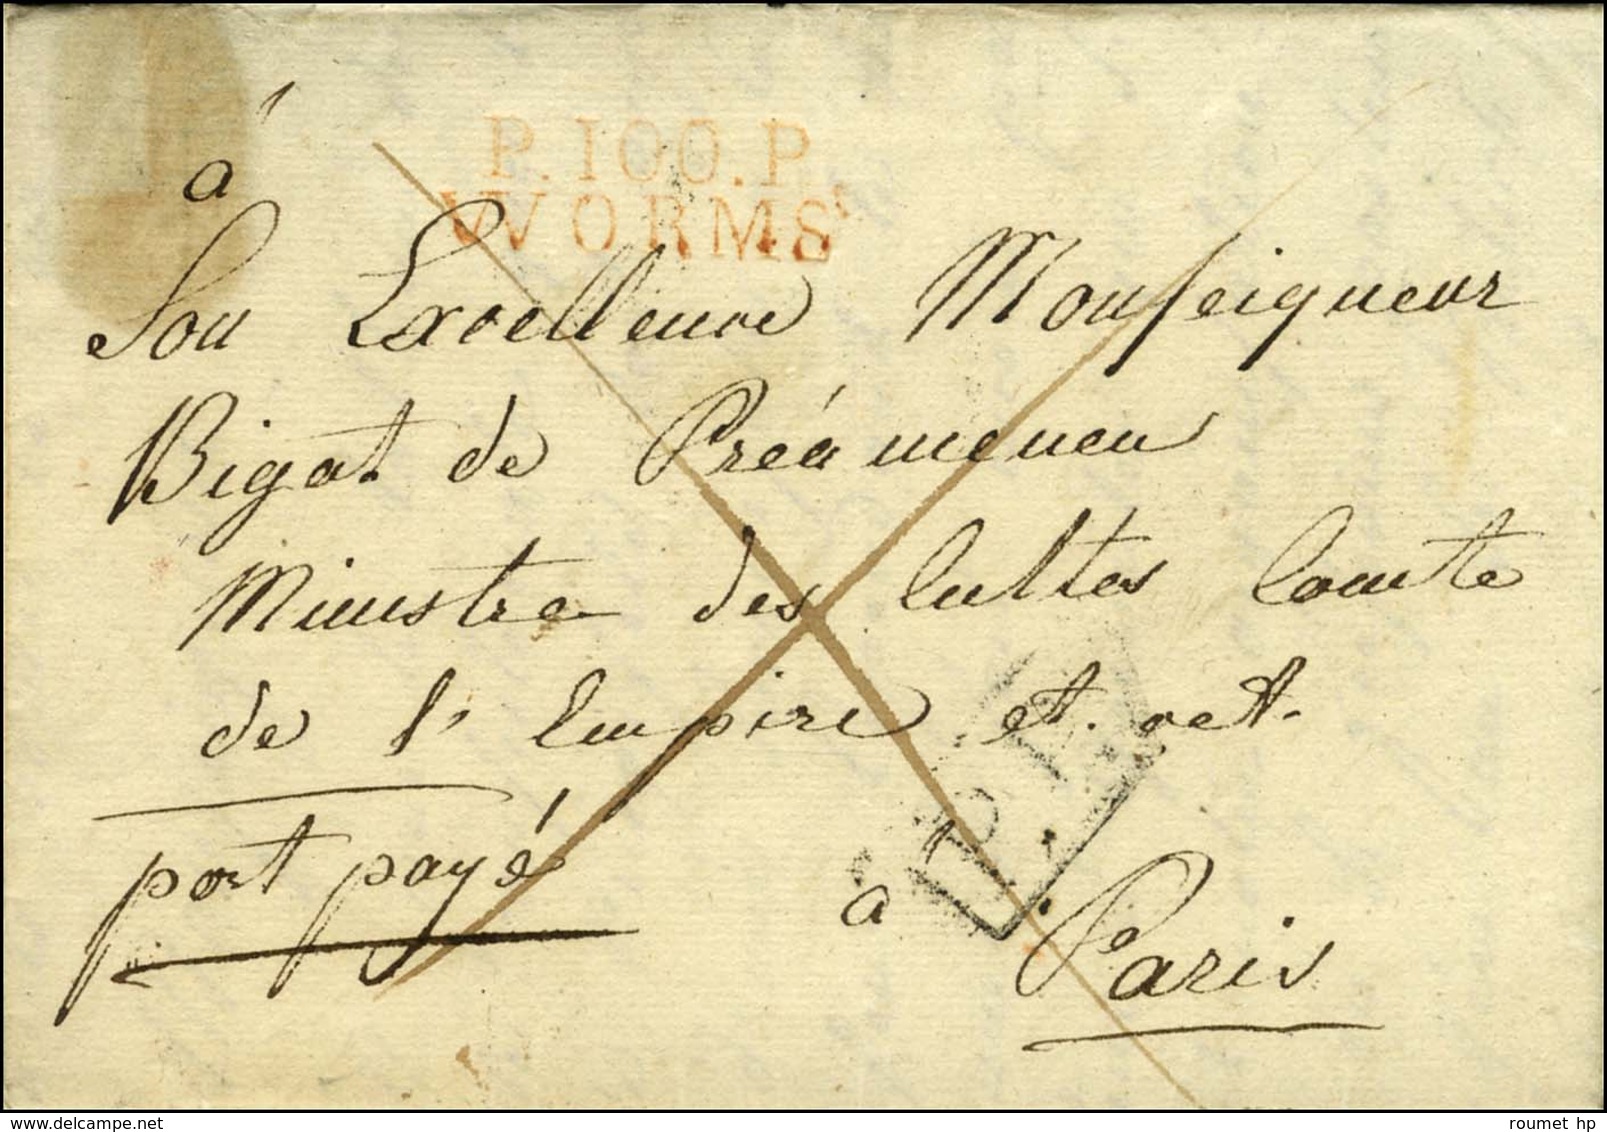 P.100.P.
WORMS
à
Son Excellence Monseigneur
Bigot de Préámeneu
Ministre des Cultes Comte
de l'Empire et. cet.
port payé
P.P.
à Paris
roumet hp